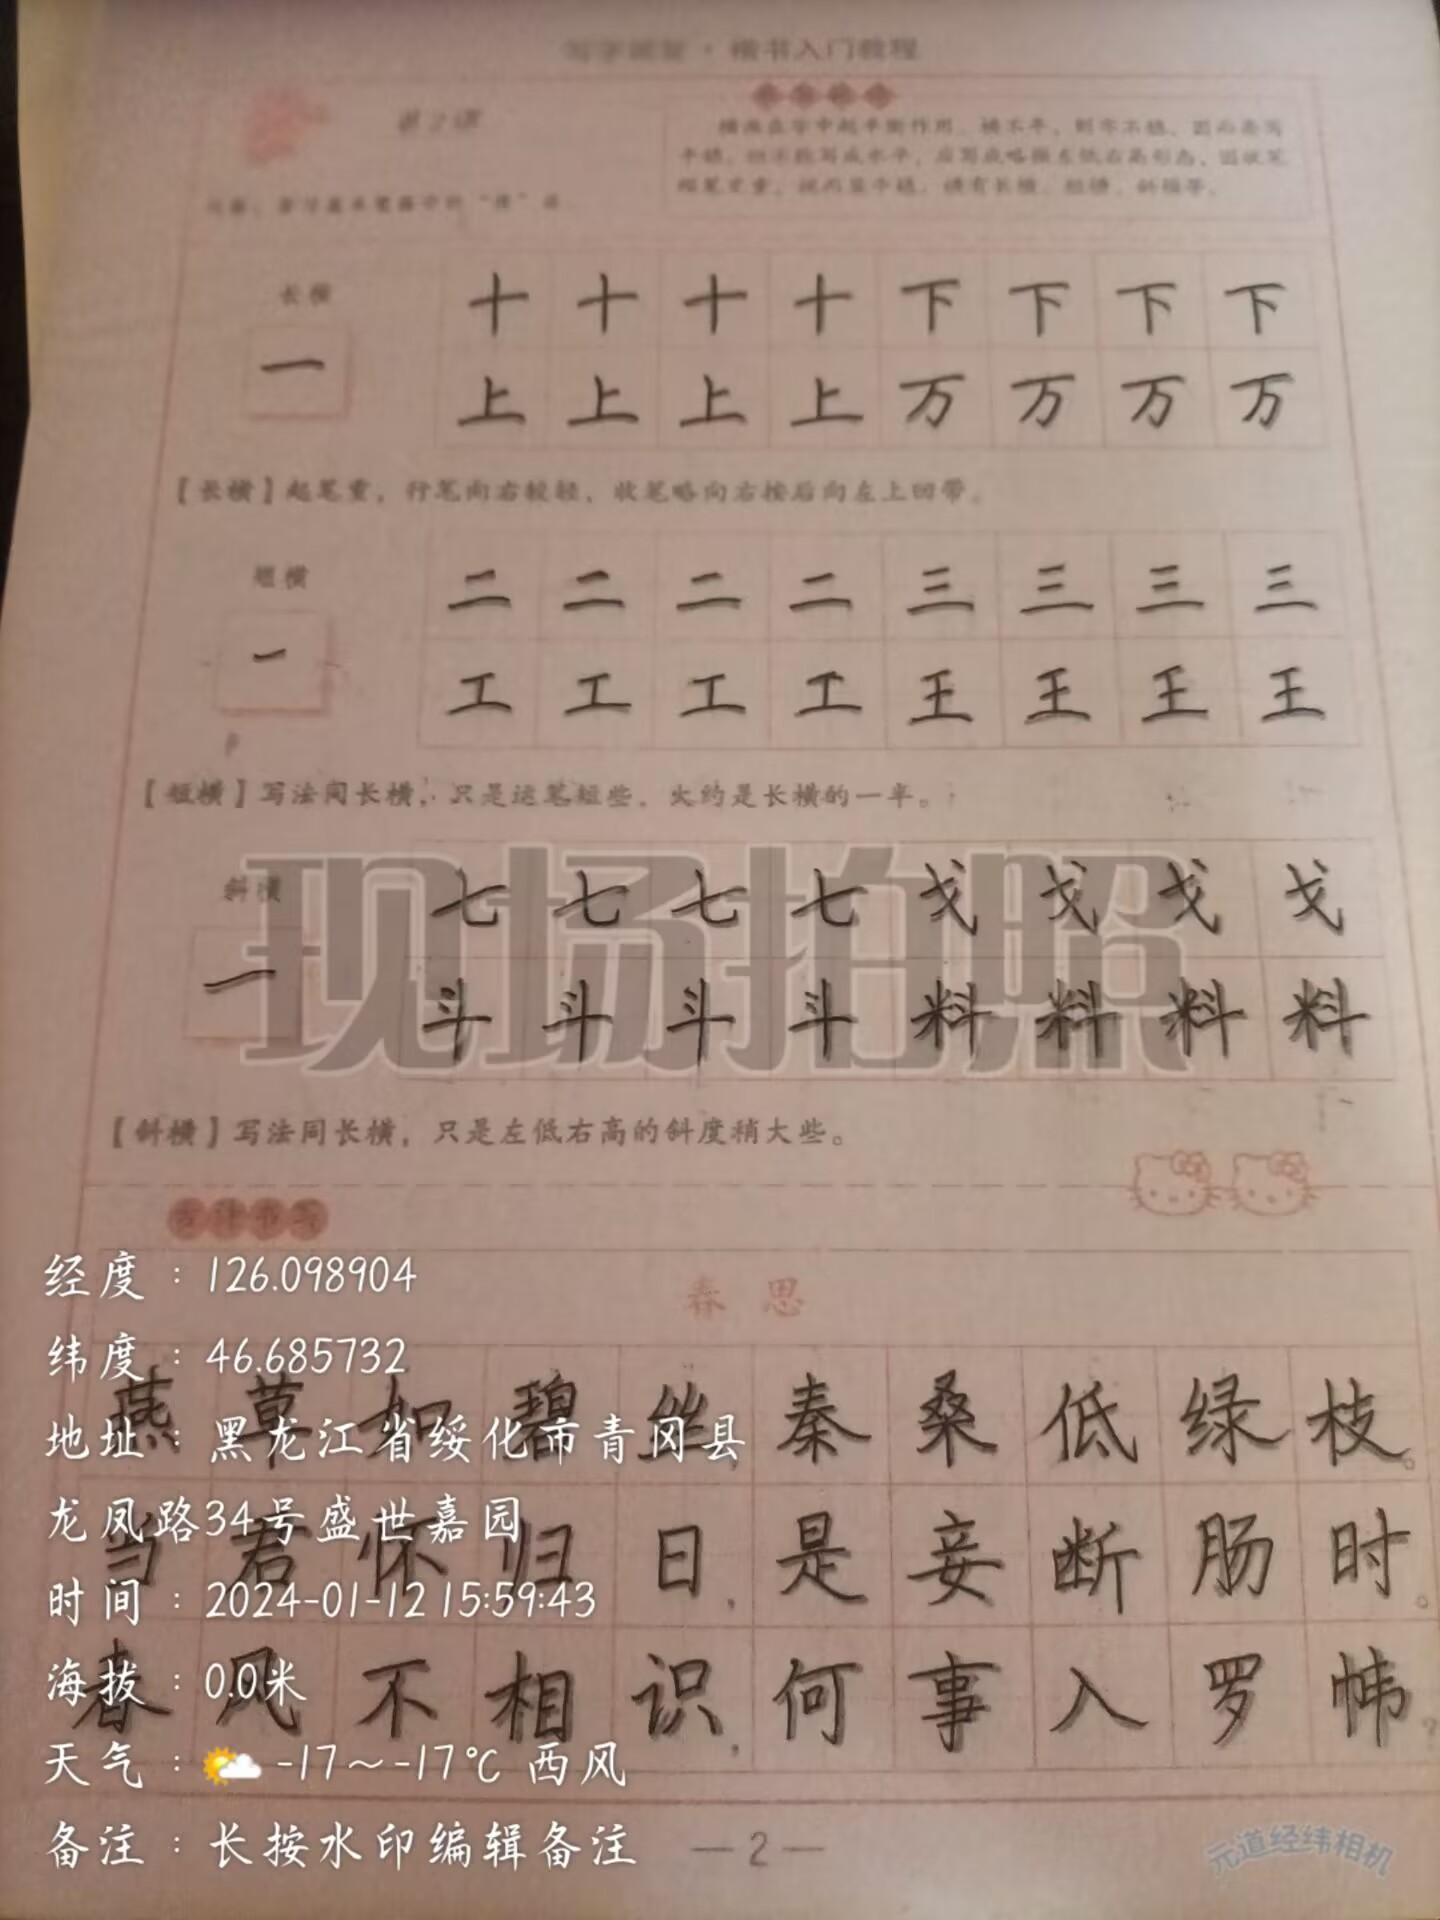 楷书入门教程
第2课
内容：学习基本笔画中的“横”画
横画在字中起平衡作用，横不平，则字不稳，因而要写
平稳，但不能写成水平，应写成略微左低右高形态，因收笔
长横
一
十 十 十 十 下 下 下 下
上 上 上 上 万 万 万 万
【长横】起笔重，行笔向右较轻，收笔略向右按后向左上回带。
短横
一
二 二 二 二 三 三 三 三
工 工 工 工 王 王 王 王
【短横】写法同长横，只是运笔短些，大约是长横的一半。
斜横
一
七 七 七 七 戈 戈 戈 戈
斗 斗 斗 斗 料 料 料 料
【斜横】写法同长横，只是左低右高的斜度稍大些。
现场拍照
春思
燕草如碧丝，秦桑低绿枝。
当君怀归日，是妾断肠时。
春风不相识，何事入罗帏？
经度：126.098904
纬度：46.685732
地址：黑龙江省绥化市青冈县
龙凤路34号盛世嘉园
时间：2024-01-12 15:59:43
海拔：0.0米
天气：-17～-17℃ 西风
备注：长按水印编辑备注
—2—
元道经纬相机